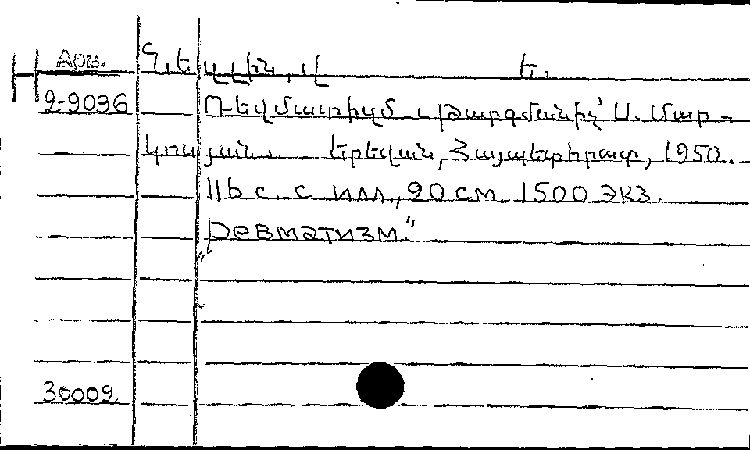 Арм.
2-9036
Ռեվմատիզմ. Թարգմանիչ՝ Ս. Մար-
կոսյան. Երևան, Հայպետհրատ, 1950.
116 с. с илл., 20 см. 1500 экз.
„Ревматизм."
30009.